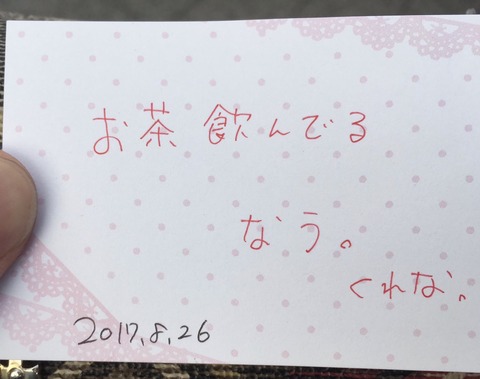 お茶飲んでる
なう。
くれな、
2017.8.26